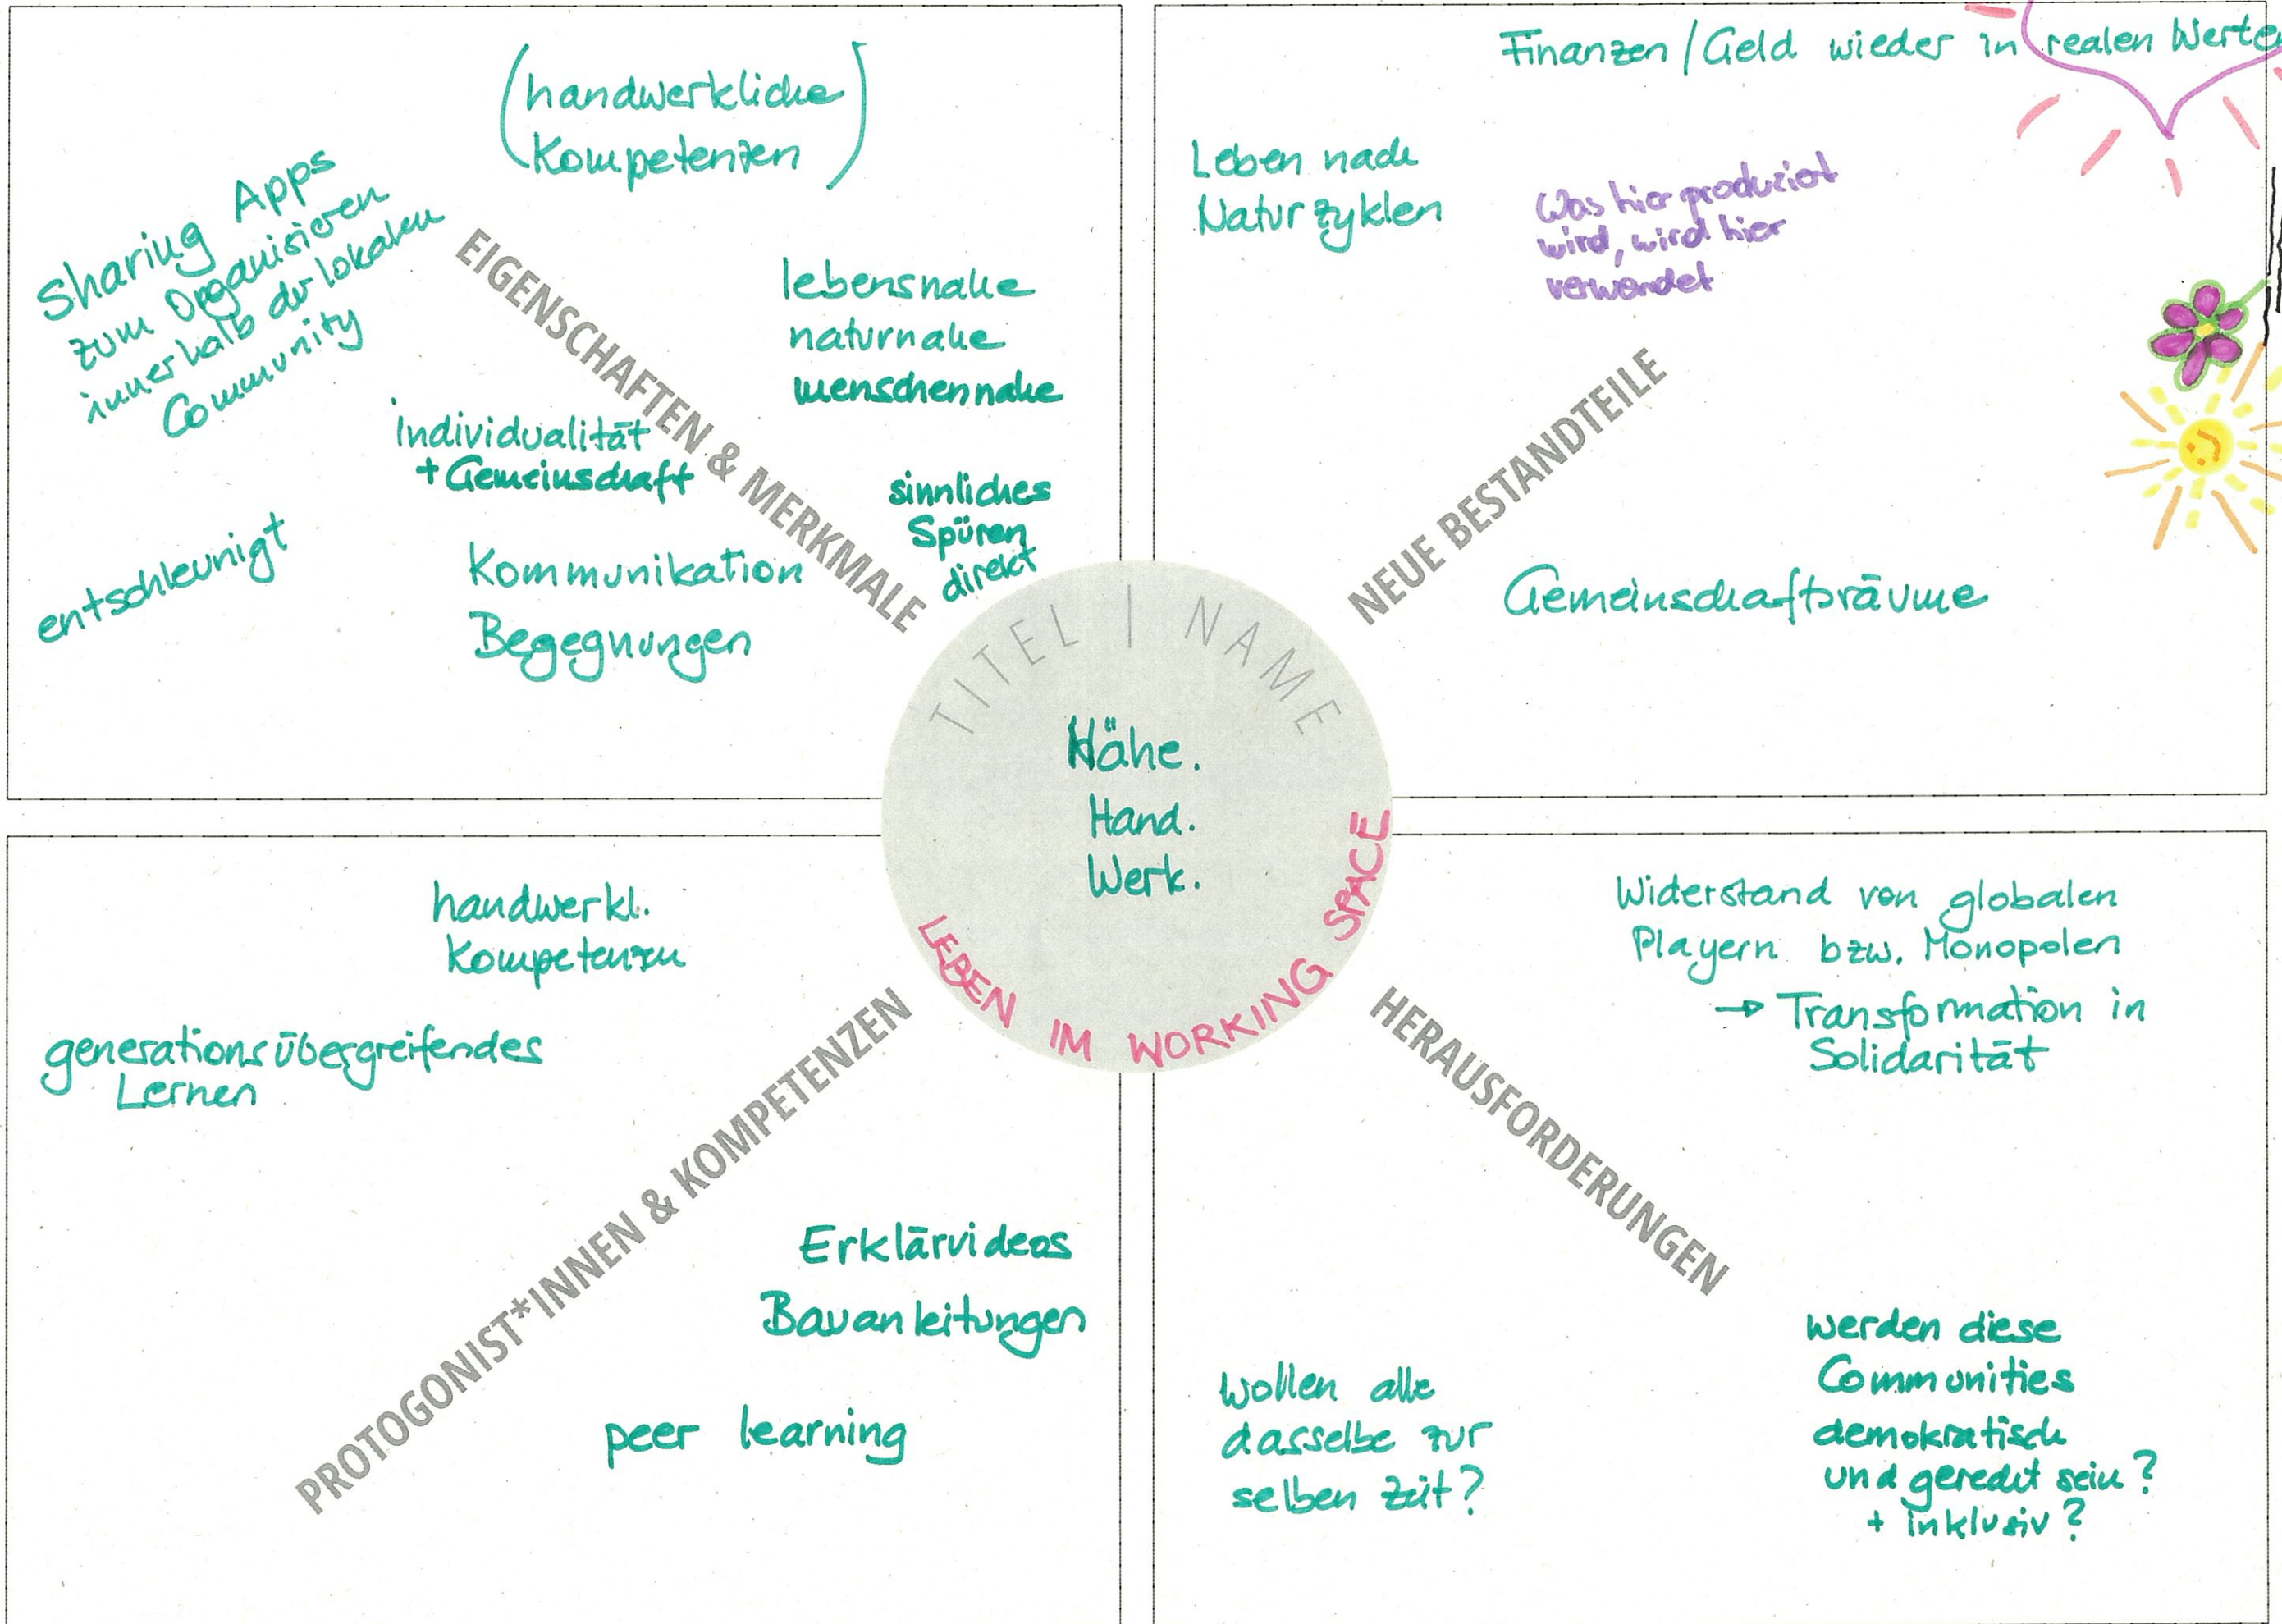 (handwerkliche
Kompetenzen)
Sharing Apps
zum Organisieren
innerhalb der lokalen
Community
EIGENSCHAFTEN & MERKMALE
lebensnahe
naturnahe
menschennahe
Individualität
+ Gemeinschaft
sinnliches
Spüren
direkt
entschleunigt
Kommunikation
Begegnungen
Finanzen/Geld wieder in realen Werten
Leben nach
Naturzyklen
Was hier produziert
wird, wird hier
verwendet
NEUE BESTANDTEILE
Gemeinschaftsräume
TITEL | NAME
Nähe.
Hand.
Werk.
LEBEN IM WORKING SPACE
handwerkl.
Kompetenzen
generationsübergreifendes
Lernen
PROTOGONIST*INNEN & KOMPETENZEN
Erklärvideos
Bauanleitungen
peer learning
Widerstand von globalen
Playern bzw. Monopolen
→ Transformation in
Solidarität
HERAUSFORDERUNGEN
Wollen alle
dasselbe zur
selben Zeit?
werden diese
Communities
demokratisch
und gerecht sein?
+ inklusiv?